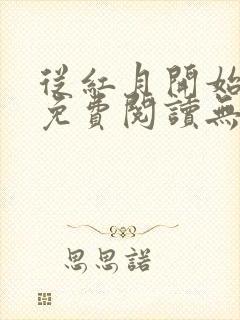 從紅月開始
免費閱讀無
思思諾